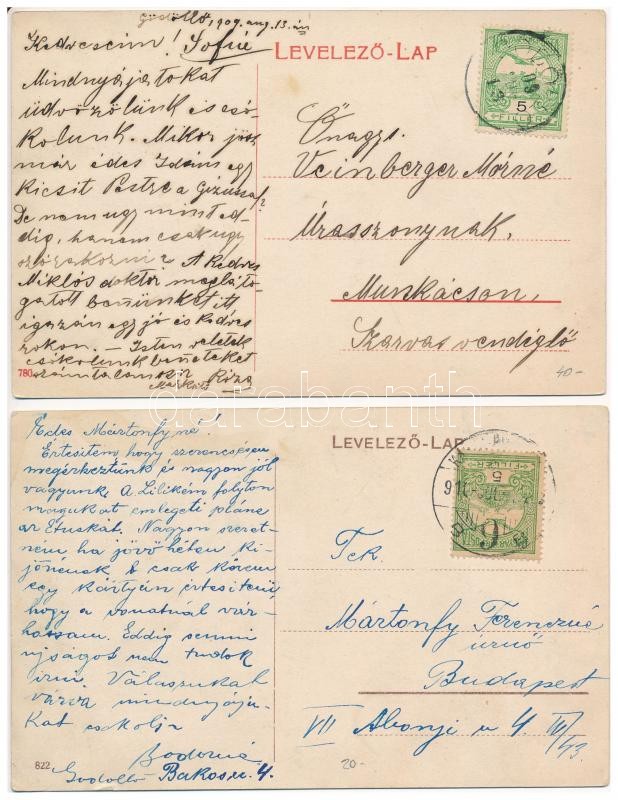 Gödöllő, 1909. aug. 13. án
Kedveseim! Zsófié
LEVELEZŐ-LAP
Mindnyájatokat
üdvözölünk és csó-
kolunk. Mikor jösz
már édes Idám egy
kicsit Pestre a Gizussal?
De nem ugy mint ed-
dig, hanem csak ugy
A kedves
Miklós doktor megláto-
gatott bennünket itt
igazán egy jó és kedves
rokon. — Isten veletek
csókolunk benneteket
számtalanszor Róza
780
5
FILLÉR
Önagys.
Veinberger Mórné
Úrasszonynak,
Munkácson,
Szarvas vendéglő
40-
darabanth
Édes Mártonfyné!
Értesitem, hogy szerencsésen
megérkeztünk és nagyon jól
vagyunk. A Lilikém folyton
magukat emlegeti pláne
az Etuskát. Nagyon szeret-
ném ha jövő héten ki-
jönének s csak kérem
egy kártyán értesiteni
hogy a vonatnál vár-
hassam. Eddig semmi
ujságot nem tudok
irni. Válaszukat
várva mindnyáju-
kat csókolja
Bodorné
Gödöllő Bakosu. 4.
822
LEVELEZŐ-LAP
5
FILLÉR
Tek.
Mártonfy Ferenczné
úrnő
Budapest
VII Abonyi u 4 IV/43.
20-